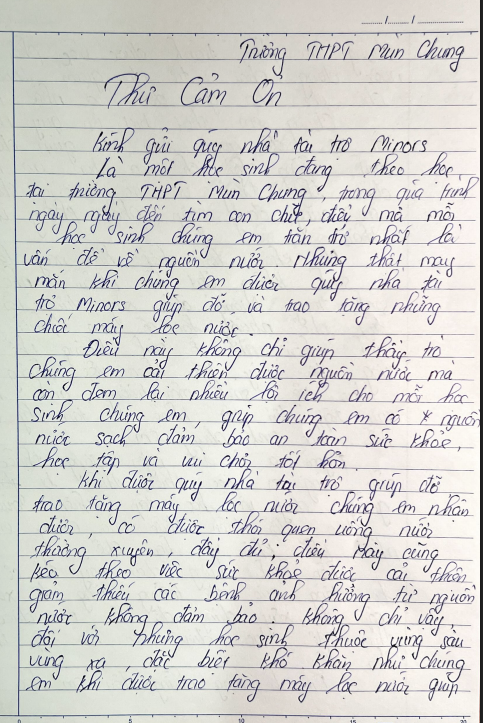 Trường THPT Mùn Chung
Thư Cảm Ơn
Kính gửi quý nhà tài trợ Minors
Là một học sinh đang theo học
tại trường THPT Mùn Chung, trong quá trình
ngày ngày đến tìm con chữ, điều mà mỗi
học sinh chúng em trăn trở nhất là
vấn đề về nguồn nước. Nhưng thật may
mắn khi chúng em được quý nhà tài
trợ Minors giúp đỡ và trao tặng những
chiếc máy lọc nước.
Điều này không chỉ giúp thầy trò
chúng em cải thiện được nguồn nước mà
còn đem lại nhiều lợi ích cho mỗi học
sinh chúng em, giúp chúng em có nguồn
nước sạch đảm bảo an toàn sức khỏe,
học tập và vui chơi tốt hơn.
Khi được quý nhà tài trợ giúp đỡ
trao tặng máy lọc nước chúng em nhận
được, có được thói quen uống nước
thường xuyên, đầy đủ, điều này cũng
kéo theo việc sức khỏe được cải thiện
giảm thiểu các bệnh ảnh hưởng từ nguồn
nước không đảm bảo. Không chỉ vậy
đối với những học sinh thuộc vùng sâu
vùng xa, đặc biệt khó khăn như chúng
em khi được trao tặng máy lọc nước giúp